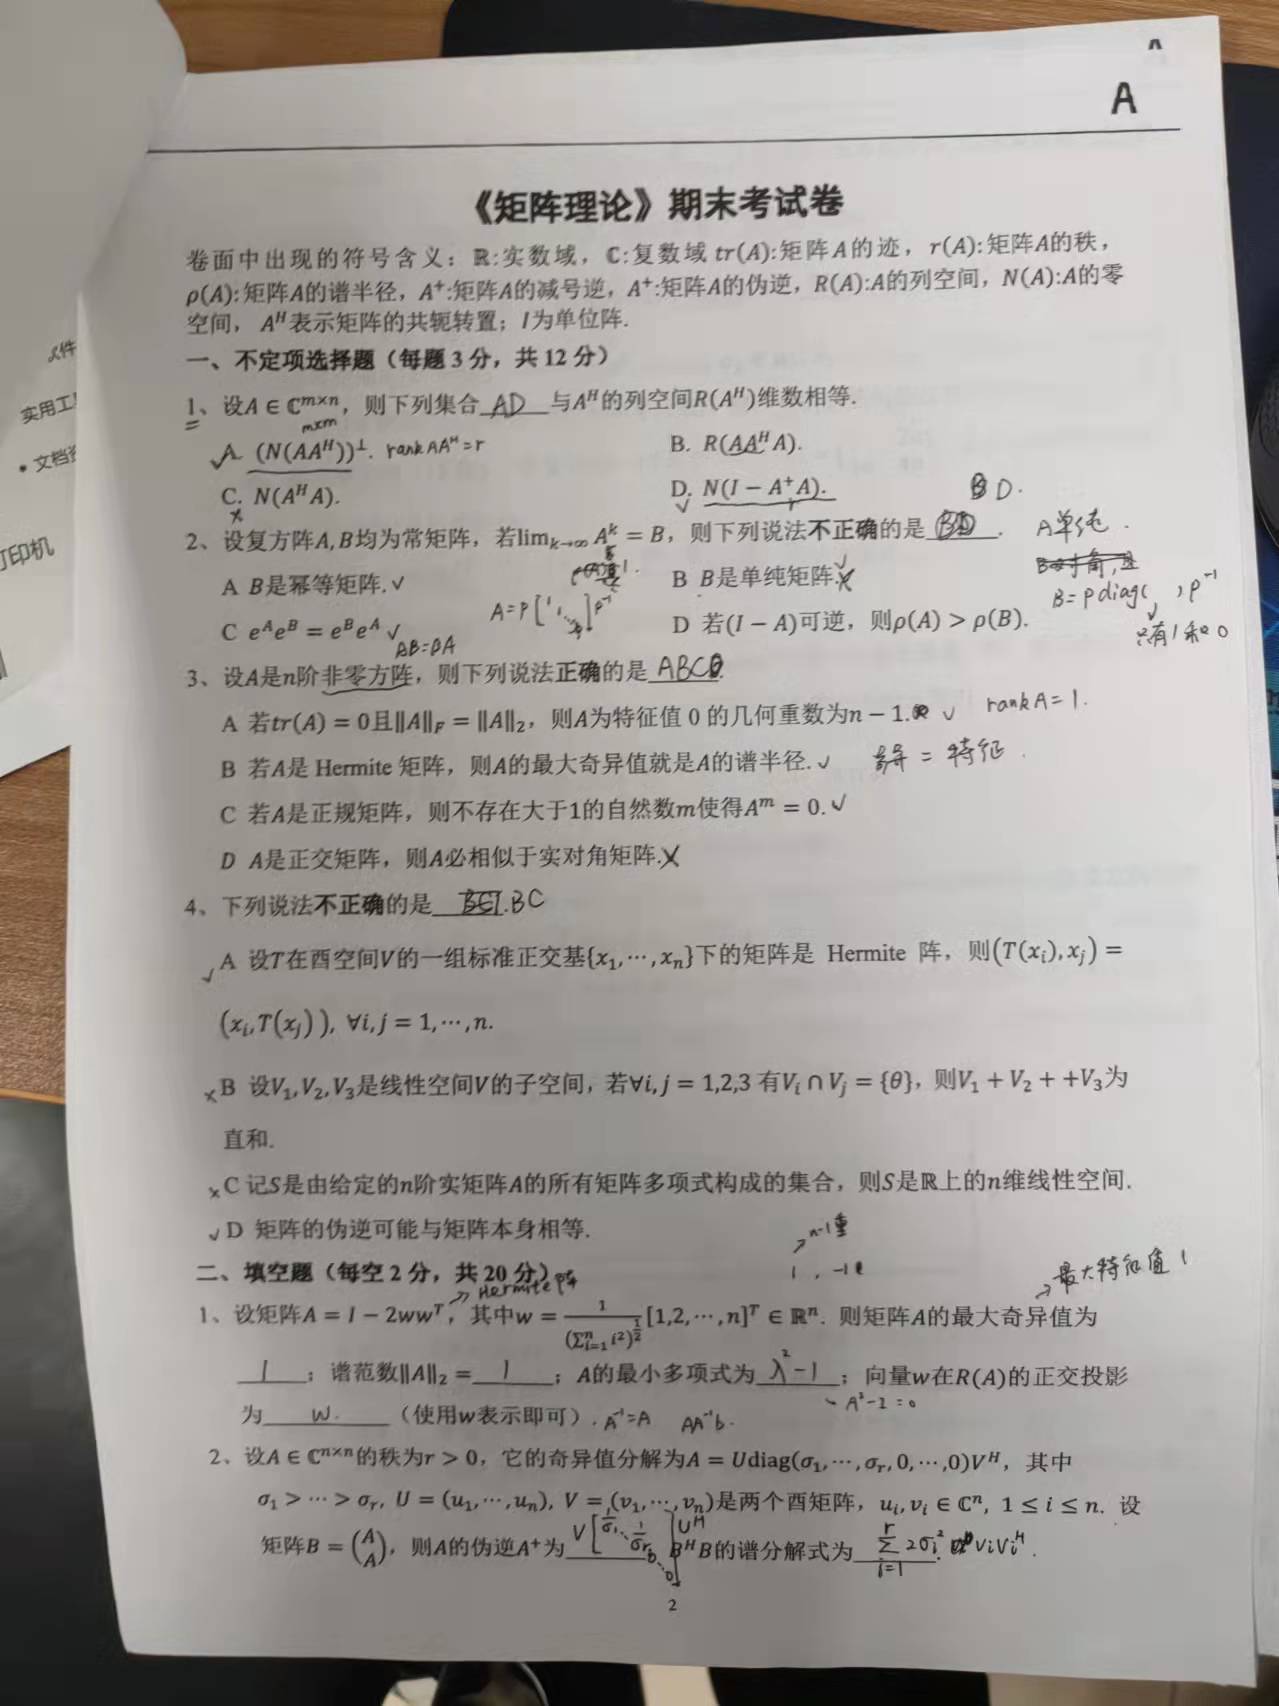 A
A
《矩阵理论》期末考试卷
卷面中出现的符号含义：ℝ:实数域，ℂ:复数域 tr(A):矩阵A的迹，r(A):矩阵A的秩，
ρ(A):矩阵A的谱半径，A⁺:矩阵A的减号逆，A⁺:矩阵A的伪逆，R(A):A的列空间，N(A):A的零
空间， Aᴴ表示矩阵的共轭转置；I为单位阵.
一、不定项选择题（每题 3 分，共 12 分）
1、设A ∈ ℂᵐˣⁿ，则下列集合 AD 与Aᴴ的列空间R(Aᴴ)维数相等.
m×m
√ A. (N(AAᴴ))⊥. rank AAᴴ = r B. R(AAᴴA).
C. N(AᴴA). D. N(I − A⁺A). BD.
× √
2、设复方阵A, B均为常矩阵，若lim k→∞ Aᵏ = B，则下列说法不正确的是 BD . A单纯.
A B是幂等矩阵.√ B B是单纯矩阵.
B = P diag( , P⁻¹
A=P[ ]P⁻¹
C eᴬeᴮ = eᴮeᴬ √ D 若(I − A)可逆，则ρ(A) > ρ(B).
AB=BA 只有1和0
3、设A是n阶非零方阵，则下列说法正确的是 ABC .
A 若tr(A) = 0且‖A‖F = ‖A‖₂，则A为特征值 0 的几何重数为n − 1. √ rank A = 1.
B 若A是 Hermite 矩阵，则A的最大奇异值就是A的谱半径.√ 奇异 = 特征.
C 若A是正规矩阵，则不存在大于1的自然数m使得Aᵐ = 0.√
D A是正交矩阵，则A必相似于实对角矩阵.×
4、下列说法不正确的是 BC
√ A 设T在酉空间V的一组标准正交基{x₁, ⋯ , xₙ}下的矩阵是 Hermite 阵，则(T(xᵢ), xⱼ) =
(xᵢ, T(xⱼ)), ∀i, j = 1, ⋯ , n.
× B 设V₁, V₂, V₃是线性空间V的子空间，若∀i, j = 1,2,3 有Vᵢ ∩ Vⱼ = {θ}，则V₁ + V₂ + +V₃为
直和.
× C 记S是由给定的n阶实矩阵A的所有矩阵多项式构成的集合，则S是ℝ上的n维线性空间.
√ D 矩阵的伪逆可能与矩阵本身相等.
n-1重
二、填空题（每空 2 分，共 20 分） 1 , -1
Hermite阵 最大特征值 1
1、设矩阵A = I − 2wwᵀ，其中w = 1/(Σⁿᵢ₌₁ i²)^(1/2) [1,2, ⋯ , n]ᵀ ∈ ℝⁿ. 则矩阵A的最大奇异值为
1 ；谱范数‖A‖₂ = 1 ；A的最小多项式为 λ²-1 ；向量w在R(A)的正交投影
A²-I=0
为 w. （使用w表示即可）. A⁻¹=A AA⁻¹b.
2、设A ∈ ℂⁿˣⁿ的秩为r > 0，它的奇异值分解为A = Udiag(σ₁, ⋯ , σᵣ, 0, ⋯ , 0)Vᴴ，其中
σ₁ > ⋯ > σᵣ, U = (u₁, ⋯ , uₙ), V = (v₁, ⋯ , vₙ)是两个酉矩阵，uᵢ, vᵢ ∈ ℂⁿ, 1 ≤ i ≤ n. 设
矩阵B = (A A)，则A的伪逆A⁺为 V[1/σ₁ ⋱ 1/σᵣ 0 ⋱ 0]Uᴴ BᴴB的谱分解式为 Σʳᵢ₌₁ 2σᵢ² vᵢvᵢᴴ .
2
实用工
• 文档
打印机